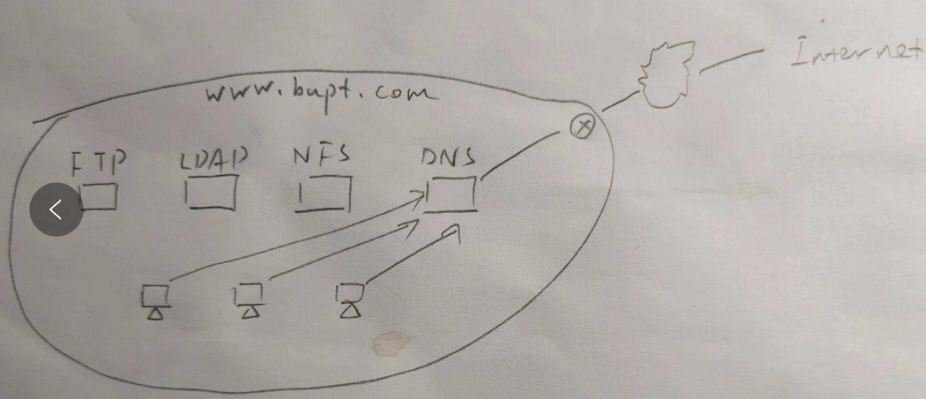 Internet
www.bupt.com
FTP LDAP NFS DNS